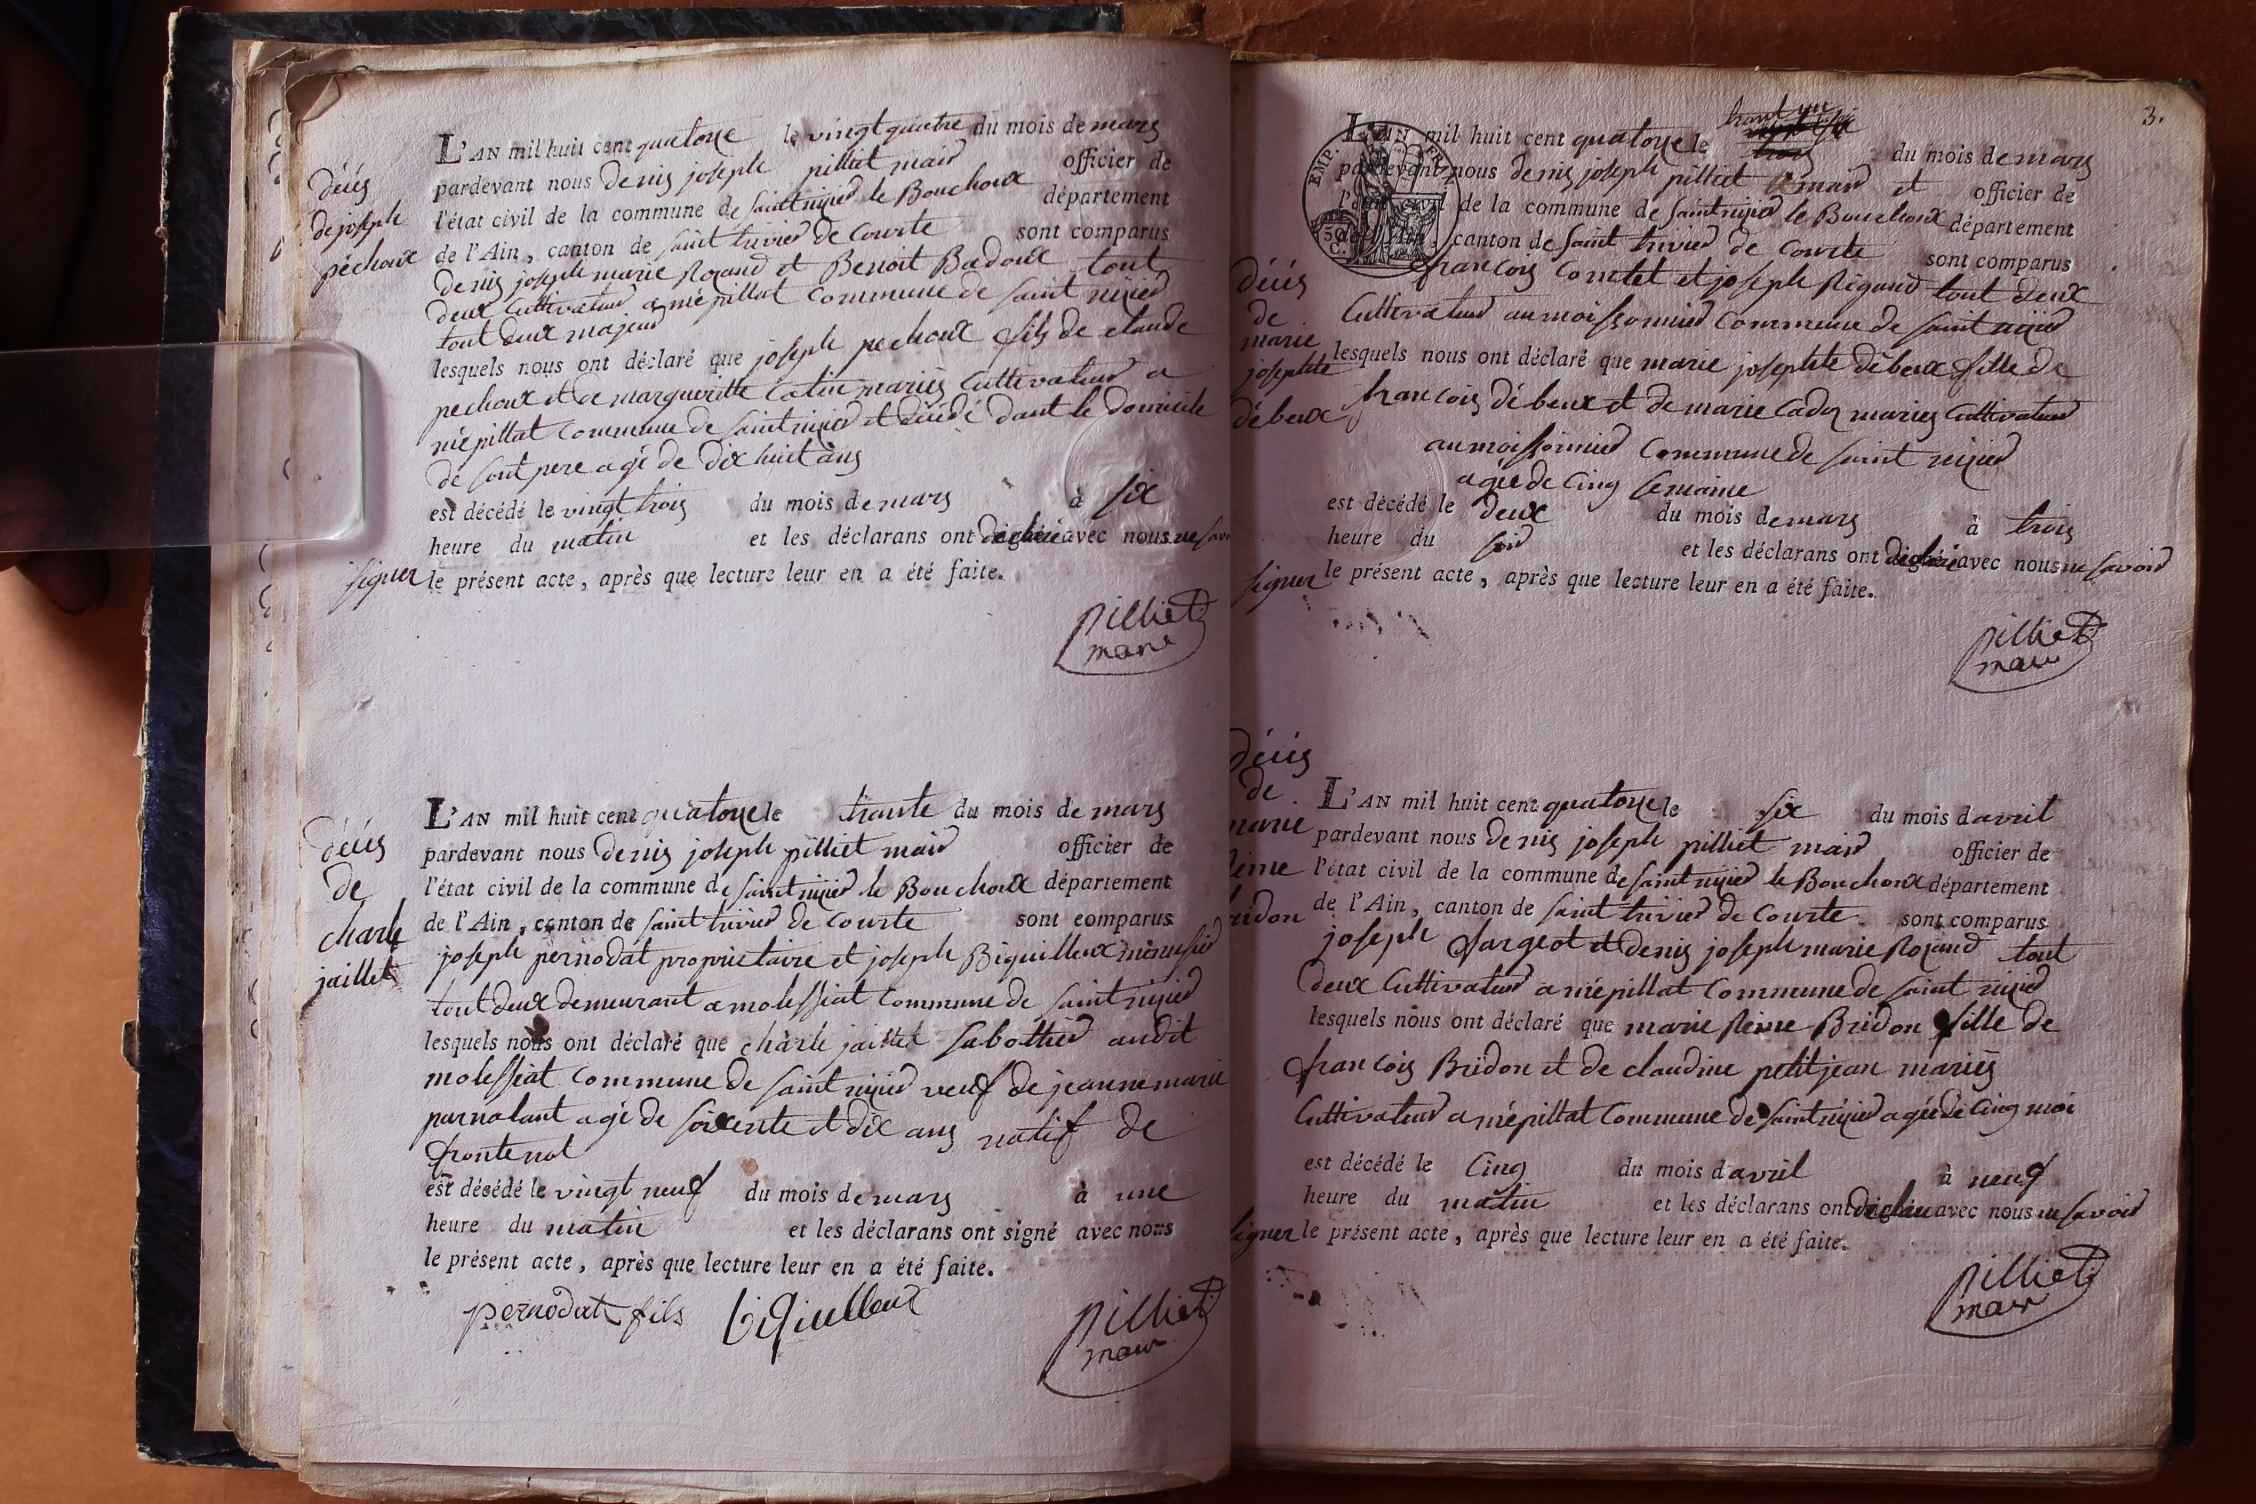 L'AN mil huit cent quatorze le vingt quatre du mois de mars
pardevant nous denis joseph pilliet maire officier de
l'état civil de la commune de saint nizier le Bouchoux département
de l'Ain, canton de saint trivier de courte sont comparus
denis joseph marie Rozand et Benoit Badoux tout
deux cultivateur a mépillat commune de saint nizier
tout deux majeur
lesquels nous ont déclaré que joseph pechoux fils de claude
pechoux et de margueritte Catin mariés cultivateur a
mépillat commune de saint nizier et décédé dant le domicile
de sont pere agé de dix huit ans
est décédé le vingt trois du mois de mars à six
heure du matin et les déclarans ont avec nous ne savoir
signer le présent acte, après que lecture leur en a été faite.
pilliet
maire
décés
de joseph
péchoux
L'AN mil huit cent quatorze le trente du mois de mars
pardevant nous denis joseph pilliet maire officier de
l'état civil de la commune de saint nizier le Bouchoux département
de l'Ain, canton de saint trivier de courte sont comparus
joseph pernodat proprietaire et joseph Biguilleux menusier
tout deux demeurant a molessiat commune de saint nizier
lesquels nous ont déclaré que charle jaillet sabottier audit
molessiat commune de saint nizier veuf de jeanne marie
parnalant agé de soixente et dix ans natif de
frontenot
est décédé le vingt neuf du mois de mars à une
heure du matin et les déclarans ont signé avec nous
le présent acte, après que lecture leur en a été faite.
pernodat fils biguilleux pilliet
maire
décés
de
charle
jaillet
3.
EMP. FR.
50 C.
trent un
L'AN mil huit cent quatorze le du mois de mars
pardevant nous denis joseph pilliet maire et officier de
l'état civil de la commune de saint nizier le Bouchoux département
de l'Ain, canton de saint trivier de courte sont comparus
françois Comtet et joseph Rigaud tout deux
Cultivateur au moissonnier commune de saint nizier
lesquels nous ont déclaré que marie josephte débeux fille de
françois débeux et de marie Cadoz mariés cultivateur
au moissonnier commune de saint nizier
agée de cinq semaine
est décédé le deux du mois de mars à trois
heure du soir et les déclarans ont avec nous ne savoir
signer le présent acte, après que lecture leur en a été faite.
pilliet
maire
décés
de
marie
josephte
débeux
L'AN mil huit cent quatorze le six du mois d'avril
pardevant nous denis joseph pilliet maire officier de
l'état civil de la commune de saint nizier le Bouchoux département
de l'Ain, canton de saint trivier de courte sont comparus
joseph fargeot et denis joseph marie Rozand tout
deux Cultivateur a mépillat commune de saint nizier
lesquels nous ont déclaré que marie Reine Bridon fille de
françois Bridon et de claudine petitjean mariés
Cultivateur a mépillat commune de saint nizier agée de cinq moi
est décédé le cinq du mois d'avril à neuf
heure du matin et les déclarans ont avec nous ne savoir
signer le présent acte, après que lecture leur en a été faite.
pilliet
maire
décés
de
marie
Reine
Bridon